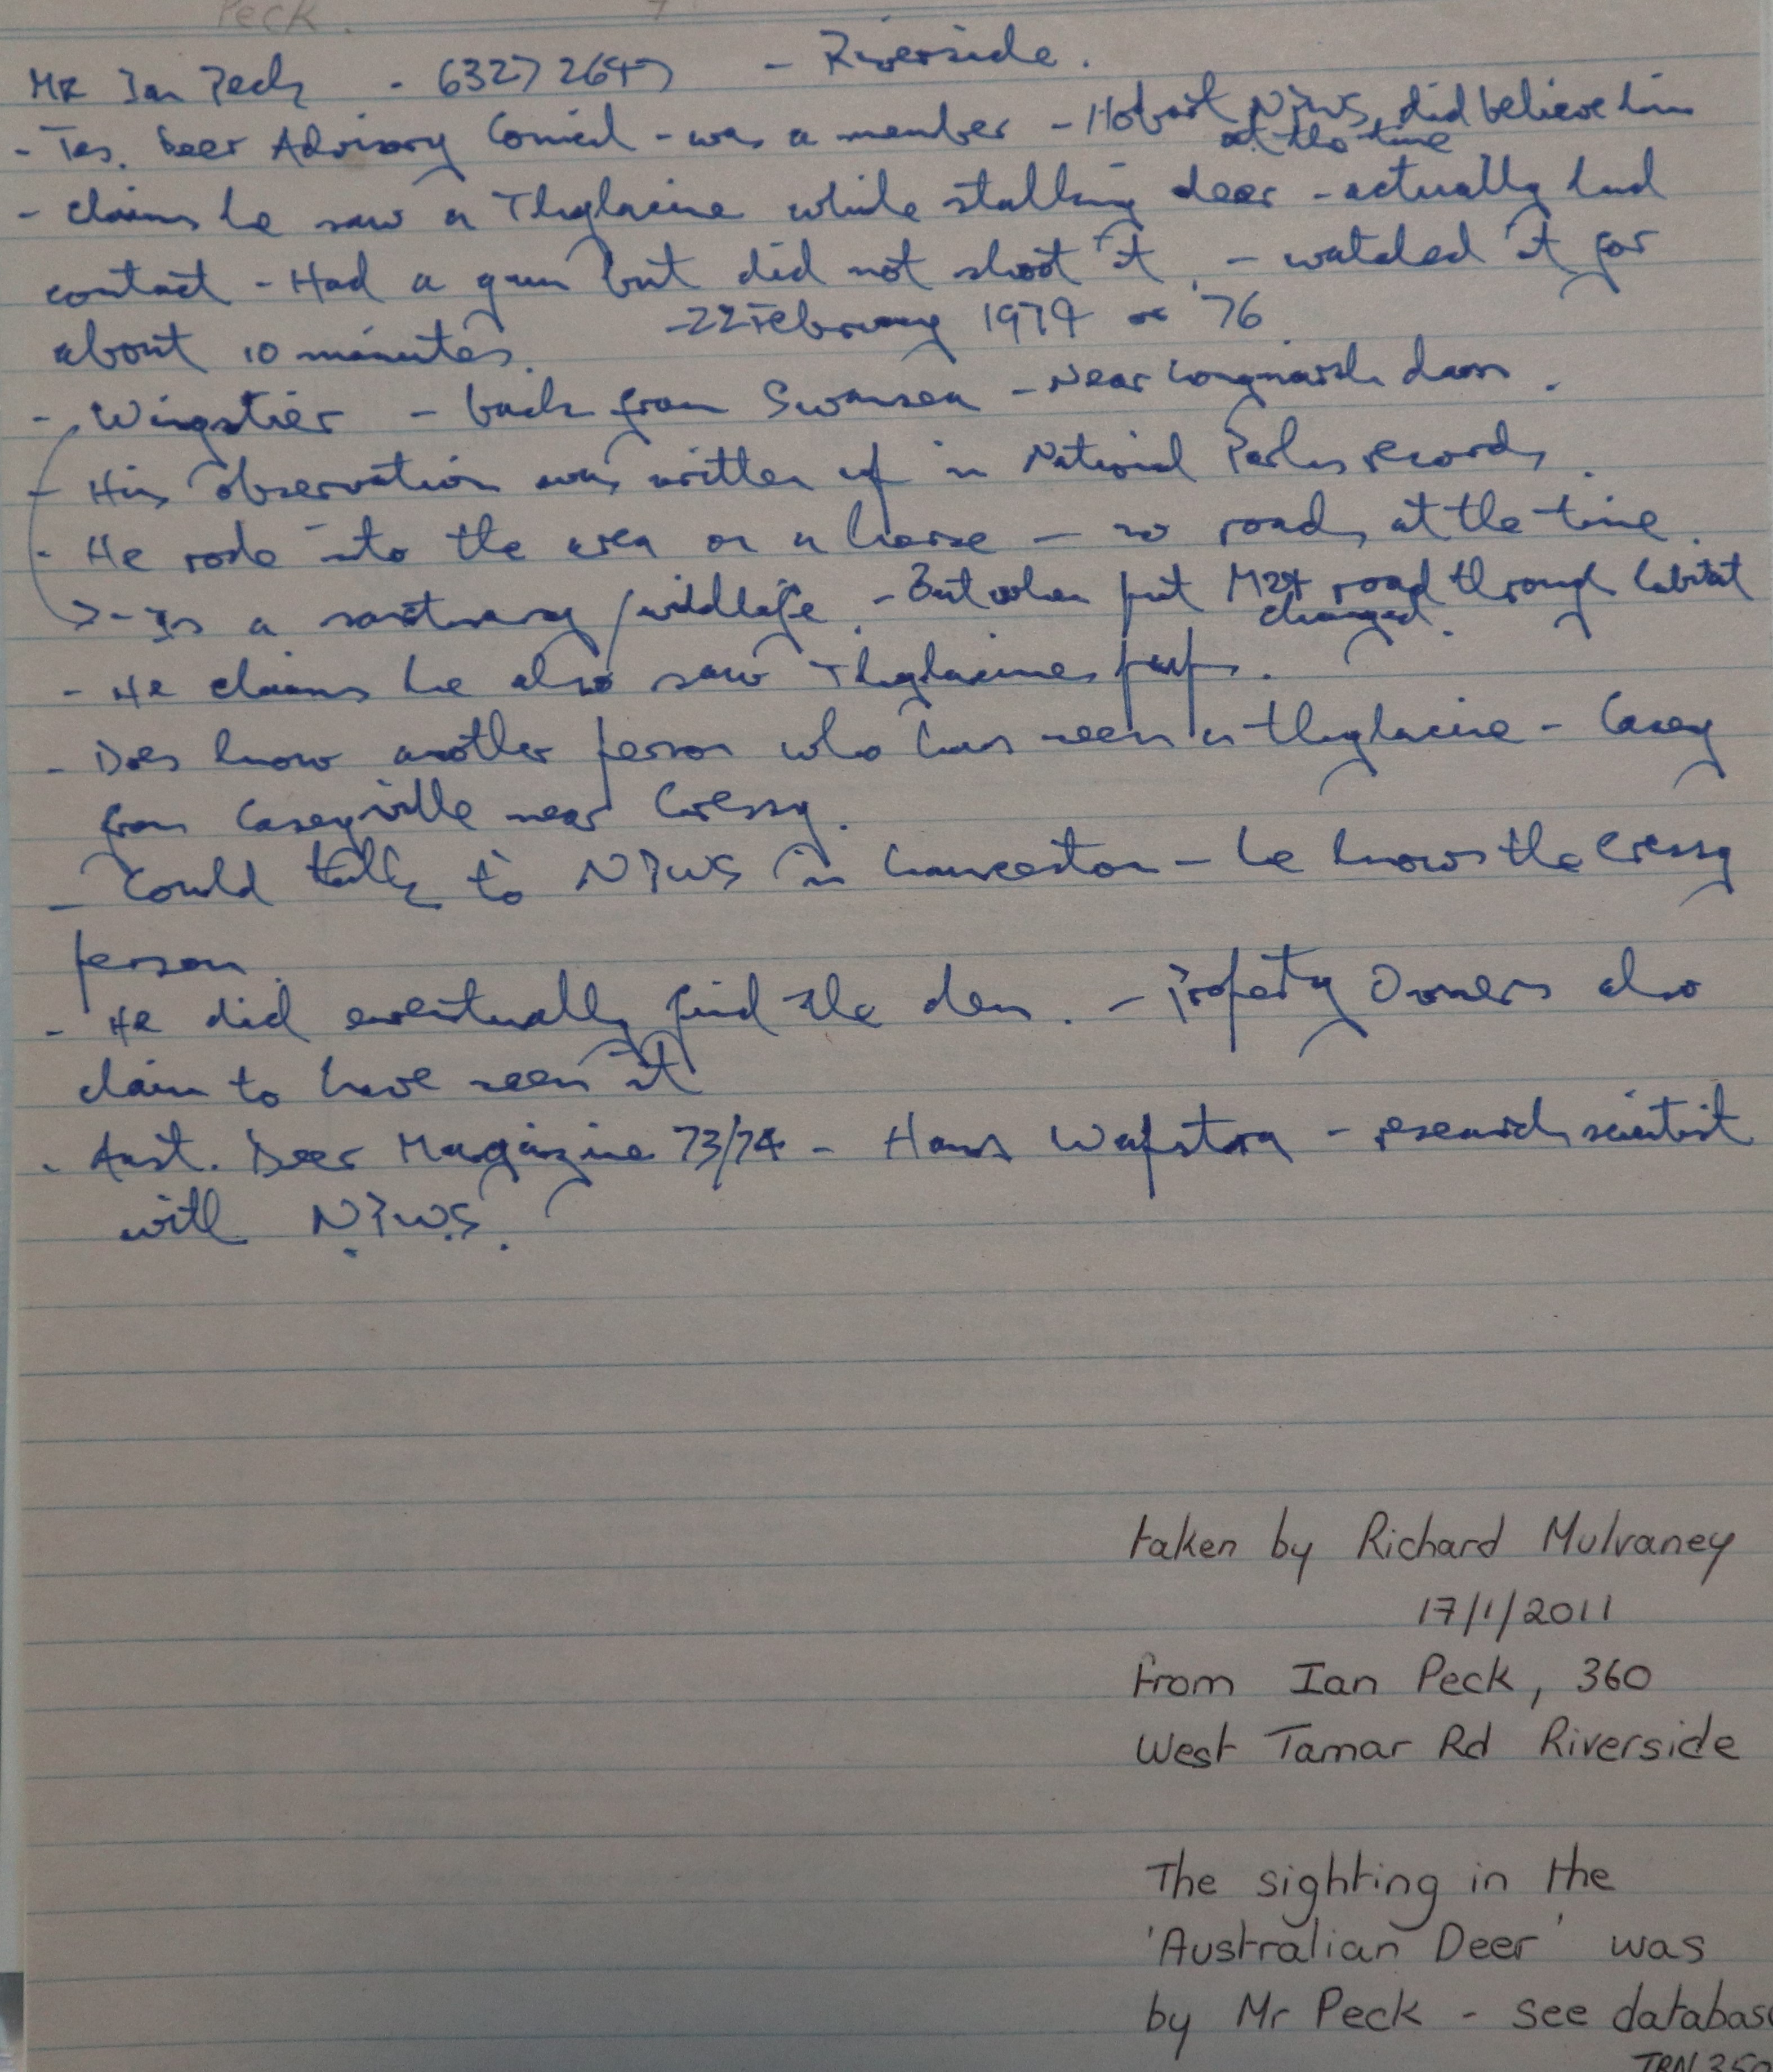 Peck.
Mr Ian Peck - 6327 2647 - Riverside.
- Tas. Deer Advisory Council - was a member - Hobart NPWS did believe him
at the time
- claims he saw a Thylacine while stalking deer - actually had
contact - Had a gun but did not shoot it. - watched it for
about 10 minutes. - 22 February 1974 or '76
- Wingstier - back from Swansea - Near Longmarsh dam.
- His observation was written up in National Parks records.
- He rode into the area on a horse - no roads at the time.
> - Is a sanctuary / wildlife. - But when put road through habitat
changed.
- He claims he also saw Thylacines pups.
- Does know another person who has seen a thylacine - Casey
from Caseyville near Cressy.
- Could talk to NPWS in Launceston - he knows the Cressy
person.
- He did eventually find the den. - Property Owners also
claim to have seen it
- Aust. Deer Magazine 73/74 - Hans Wapstra - research scientist
with NPWS.
taken by Richard Mulvaney
17/1/2011
from Ian Peck, 360
West Tamar Rd Riverside
The sighting in the
'Australian Deer' was
by Mr Peck - see databas